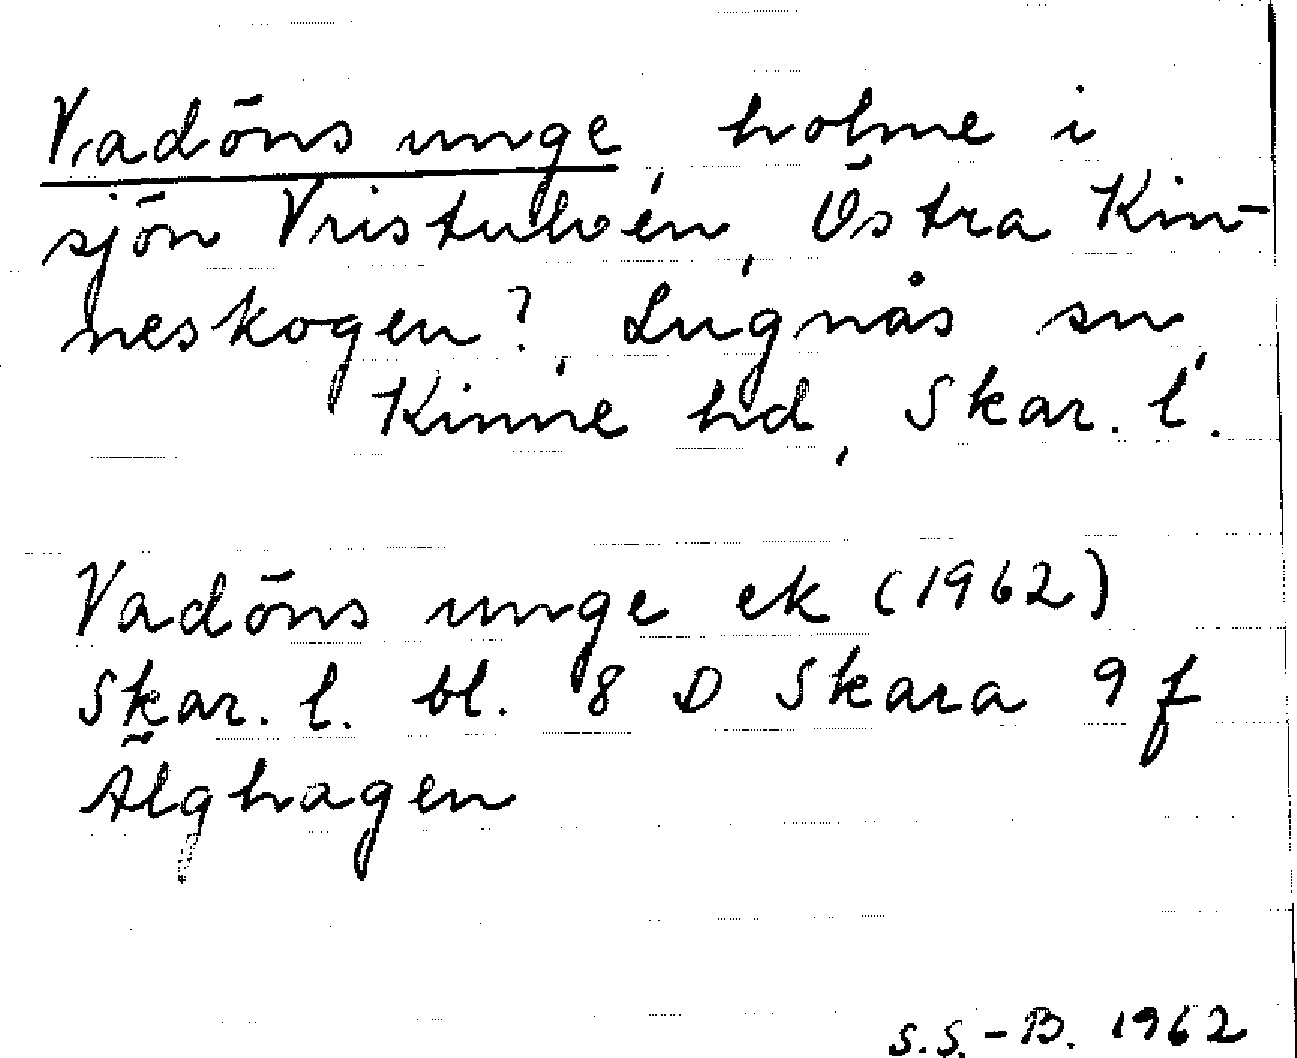 Vadöns unge, holme i
sjön Vristulven, Östra Kin-
neskogen?, Lugnås sn,
Kinne hd, Skar. l.
Vadöns unge ek (1962)
Skar. l. bl. 8 D Skara 9 f
Älghagen
S.S.-B. 1962